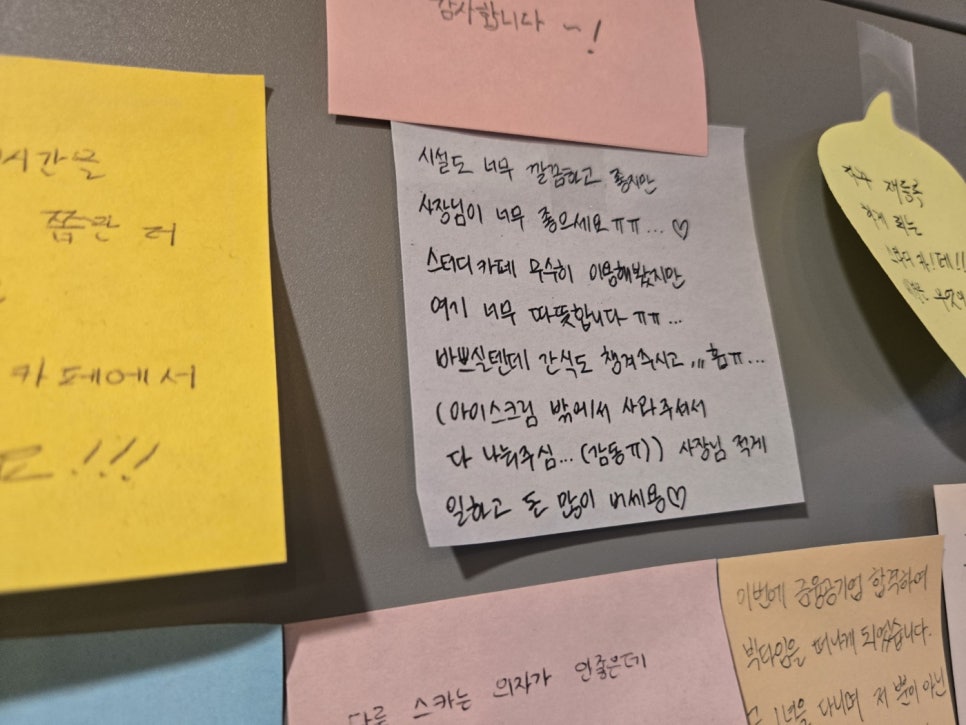 감사합니다 ~!
시간을
쫌만 더
카페에서
요!!!
시설도 너무 깔끔하고 좋지만
사장님이 너무 좋으세요ㅠㅠ... ♡
스터디카페 무수히 이용해봤지만
여기 너무 따뜻합니다 ㅠㅠ...
바쁘실텐데 간식도 챙겨주시고,,, 흡ㅠ...
(아이스크림 밖에서 사와주셔서
다 나눠주심... (감동ㅠ)) 사장님 적게
일하고 돈 많이 버세용♡
재등록
하게 되는
다른 스카는 의자가 안좋은데
이번에 금융공기업 합격하여
빅타임을 떠나게 되었습니다.
1년을 다니며 저 뿐이 아닌